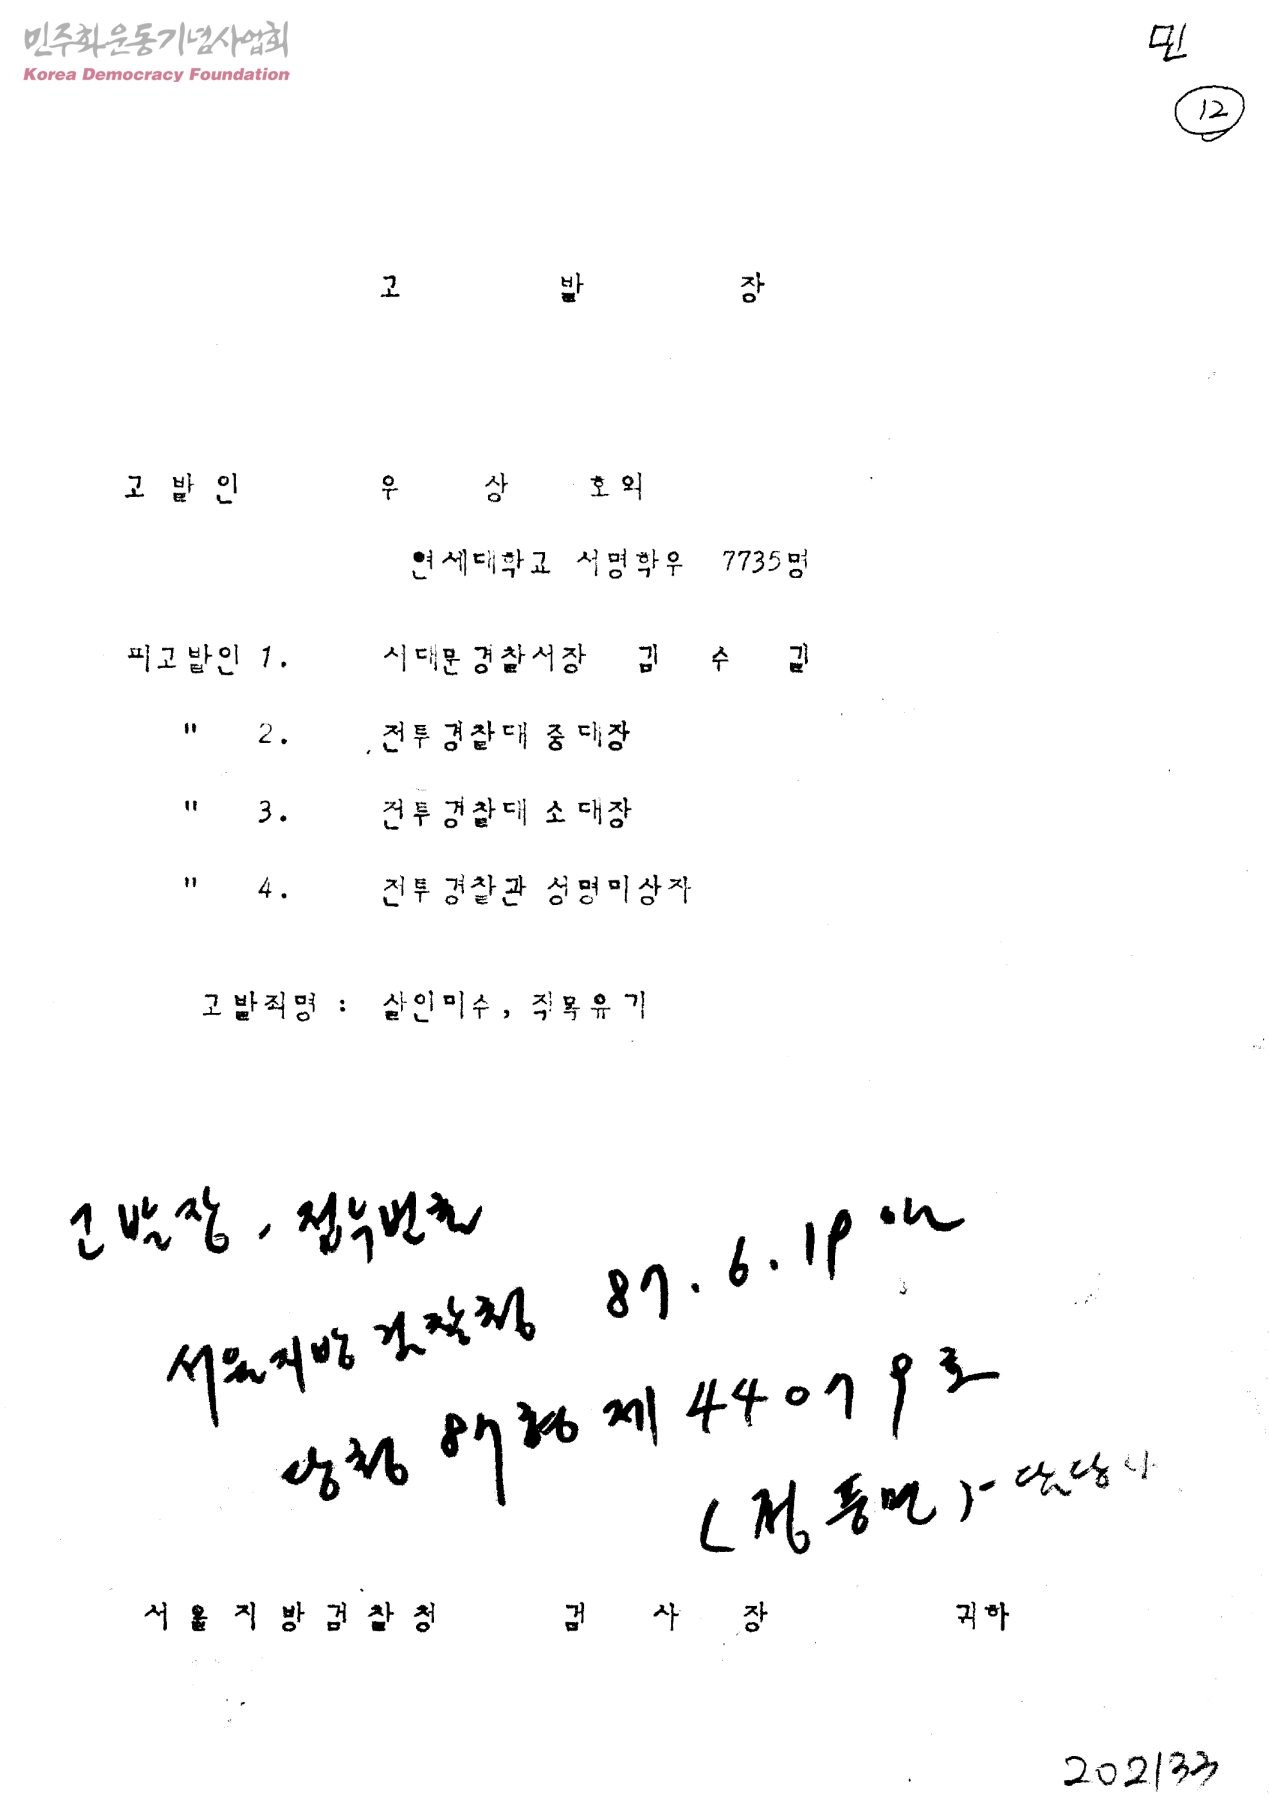 민주화운동기념사업회
Korea Democracy Foundation
민
12
고 발 장
고 발 인 우 상 호외
연세대학교 서명학우 7735명
피고발인 1. 서대문경찰서장 김 수 길
" 2. 전투경찰대 중대장
" 3. 전투경찰대 소대장
" 4. 전투경찰관 성명미상자
고발죄명 : 살인미수, 직무유기
고발장, 접수번호
서울지방검찰청 87. 6. 19
당청 87형 제 44079호
(정풍면)- 담당
서울지방검찰청 검 사 장 귀하
202133